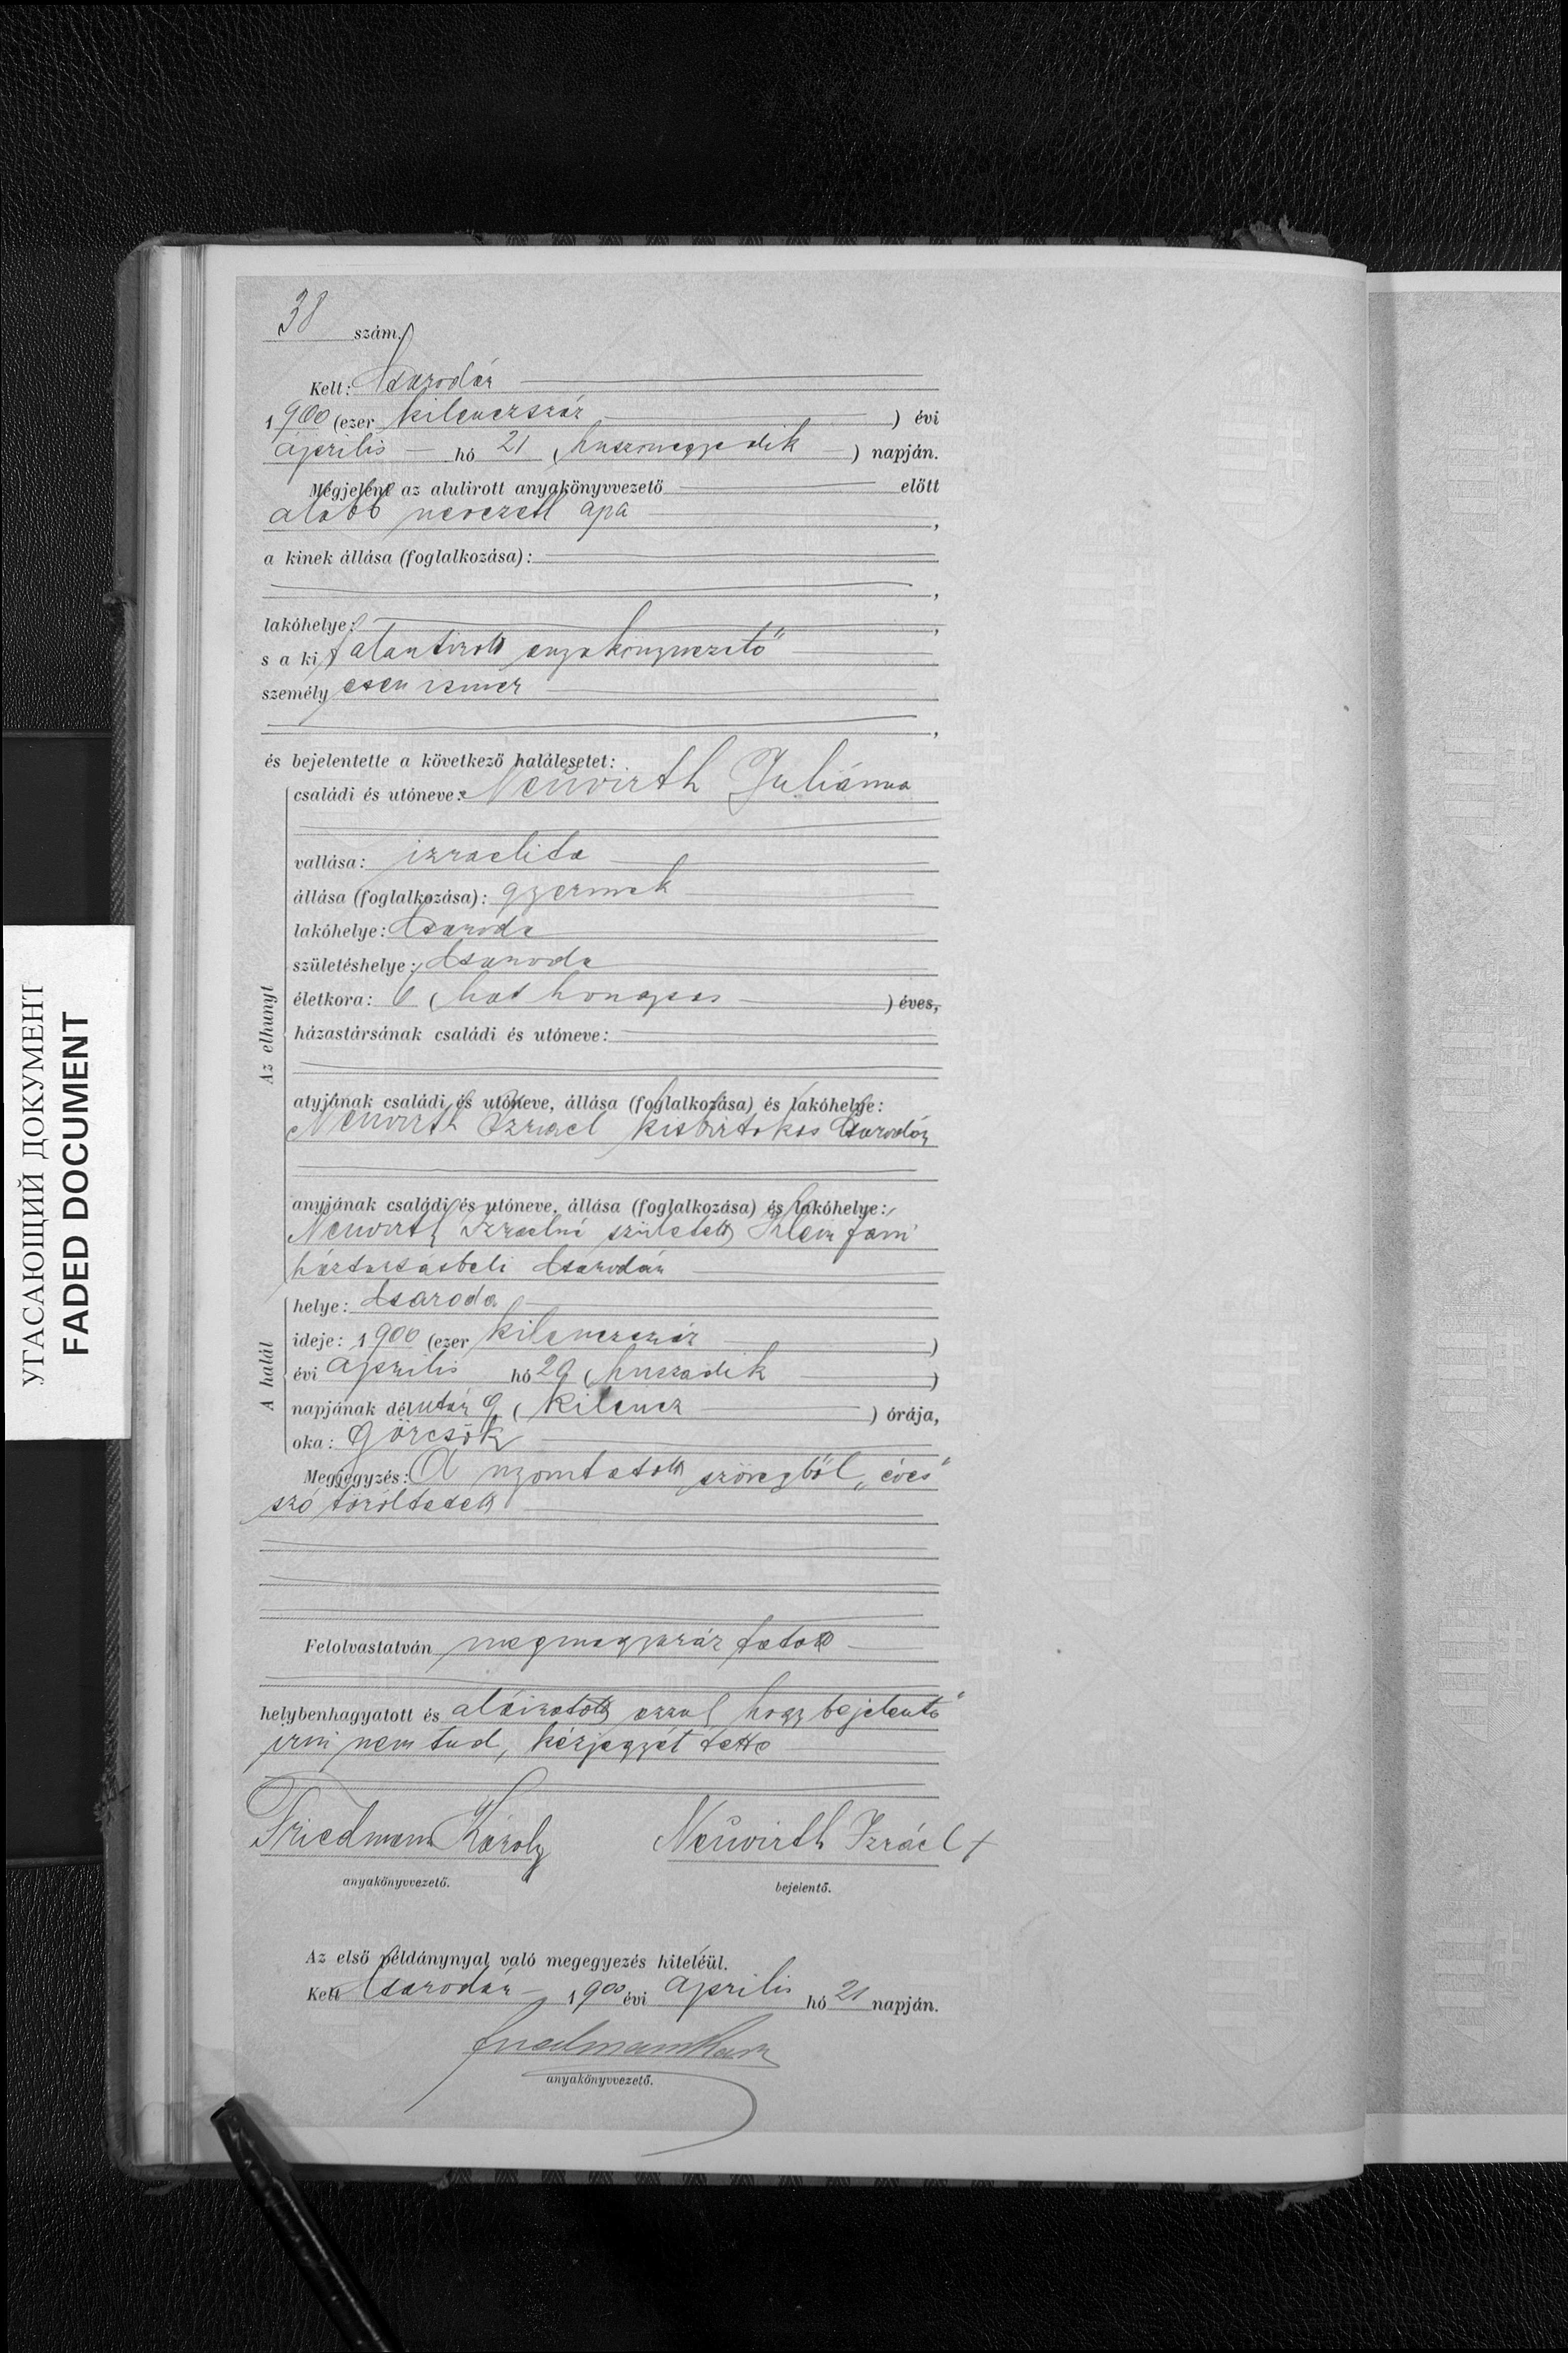 38 szám.
Kelt: Csarodán
1900 (ezer kilenczszáz) évi
április hó 21 (huszonegyedik) napján.
Megjelent az alulirott anyakönyvvezető előtt
alább nevezett apa,
a kinek állása (foglalkozása):
,
lakóhelye:,
s a kit alantirott anyakönyvvezető
személyesen ismer
,
és bejelentette a következő halálesetet:
Az elhunyt
családi és utóneve: Neüwirth Juliánna
vallása: izraelita
állása (foglalkozása): gyermek
lakóhelye: Csaroda
születéshelye: Csaroda
életkora: 6 (hat honapos) éves,
házastársának családi és utóneve:
atyjának családi és utóneve, állása (foglalkozása) és lakóhelye:
Neuvirth Izrael kisbirtokos Csarodán
anyjának családi és utóneve, állása (foglalkozása) és lakóhelye:
Neuvirth Izraelné született Klein fani
háztartásbeli Csarodán
A halál
helye: Csaroda
ideje: 1900 (ezer kilenczszáz)
évi április hó 20 (huszadik)
napjának délután 9 (kilencz) órája,
oka: görcsök
Megjegyzés: A nyomtatott szövegből „éves"
szó töröltetett
Felolvastatván megmagyaráztatott
helybenhagyatott és aláiratott azzal hogy bejelentő
irni nem tud, kézjegyét tette
Friedmann Károly Neüwirth Izráel +
anyakönyvvezető. bejelentő.
Az első példánynyal való megegyezés hiteléül.
Kelt Csarodán 1900 évi április hó 21 napján.
Friedmann Károly
anyakönyvvezető.
УГАСАЮЩИЙ ДОКУМЕНТ
FADED DOCUMENT